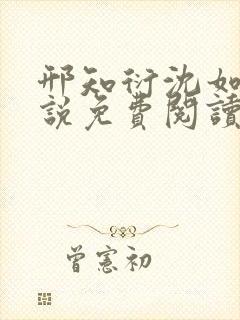 邢知衍沈如
說免費閱讀
曾憲初